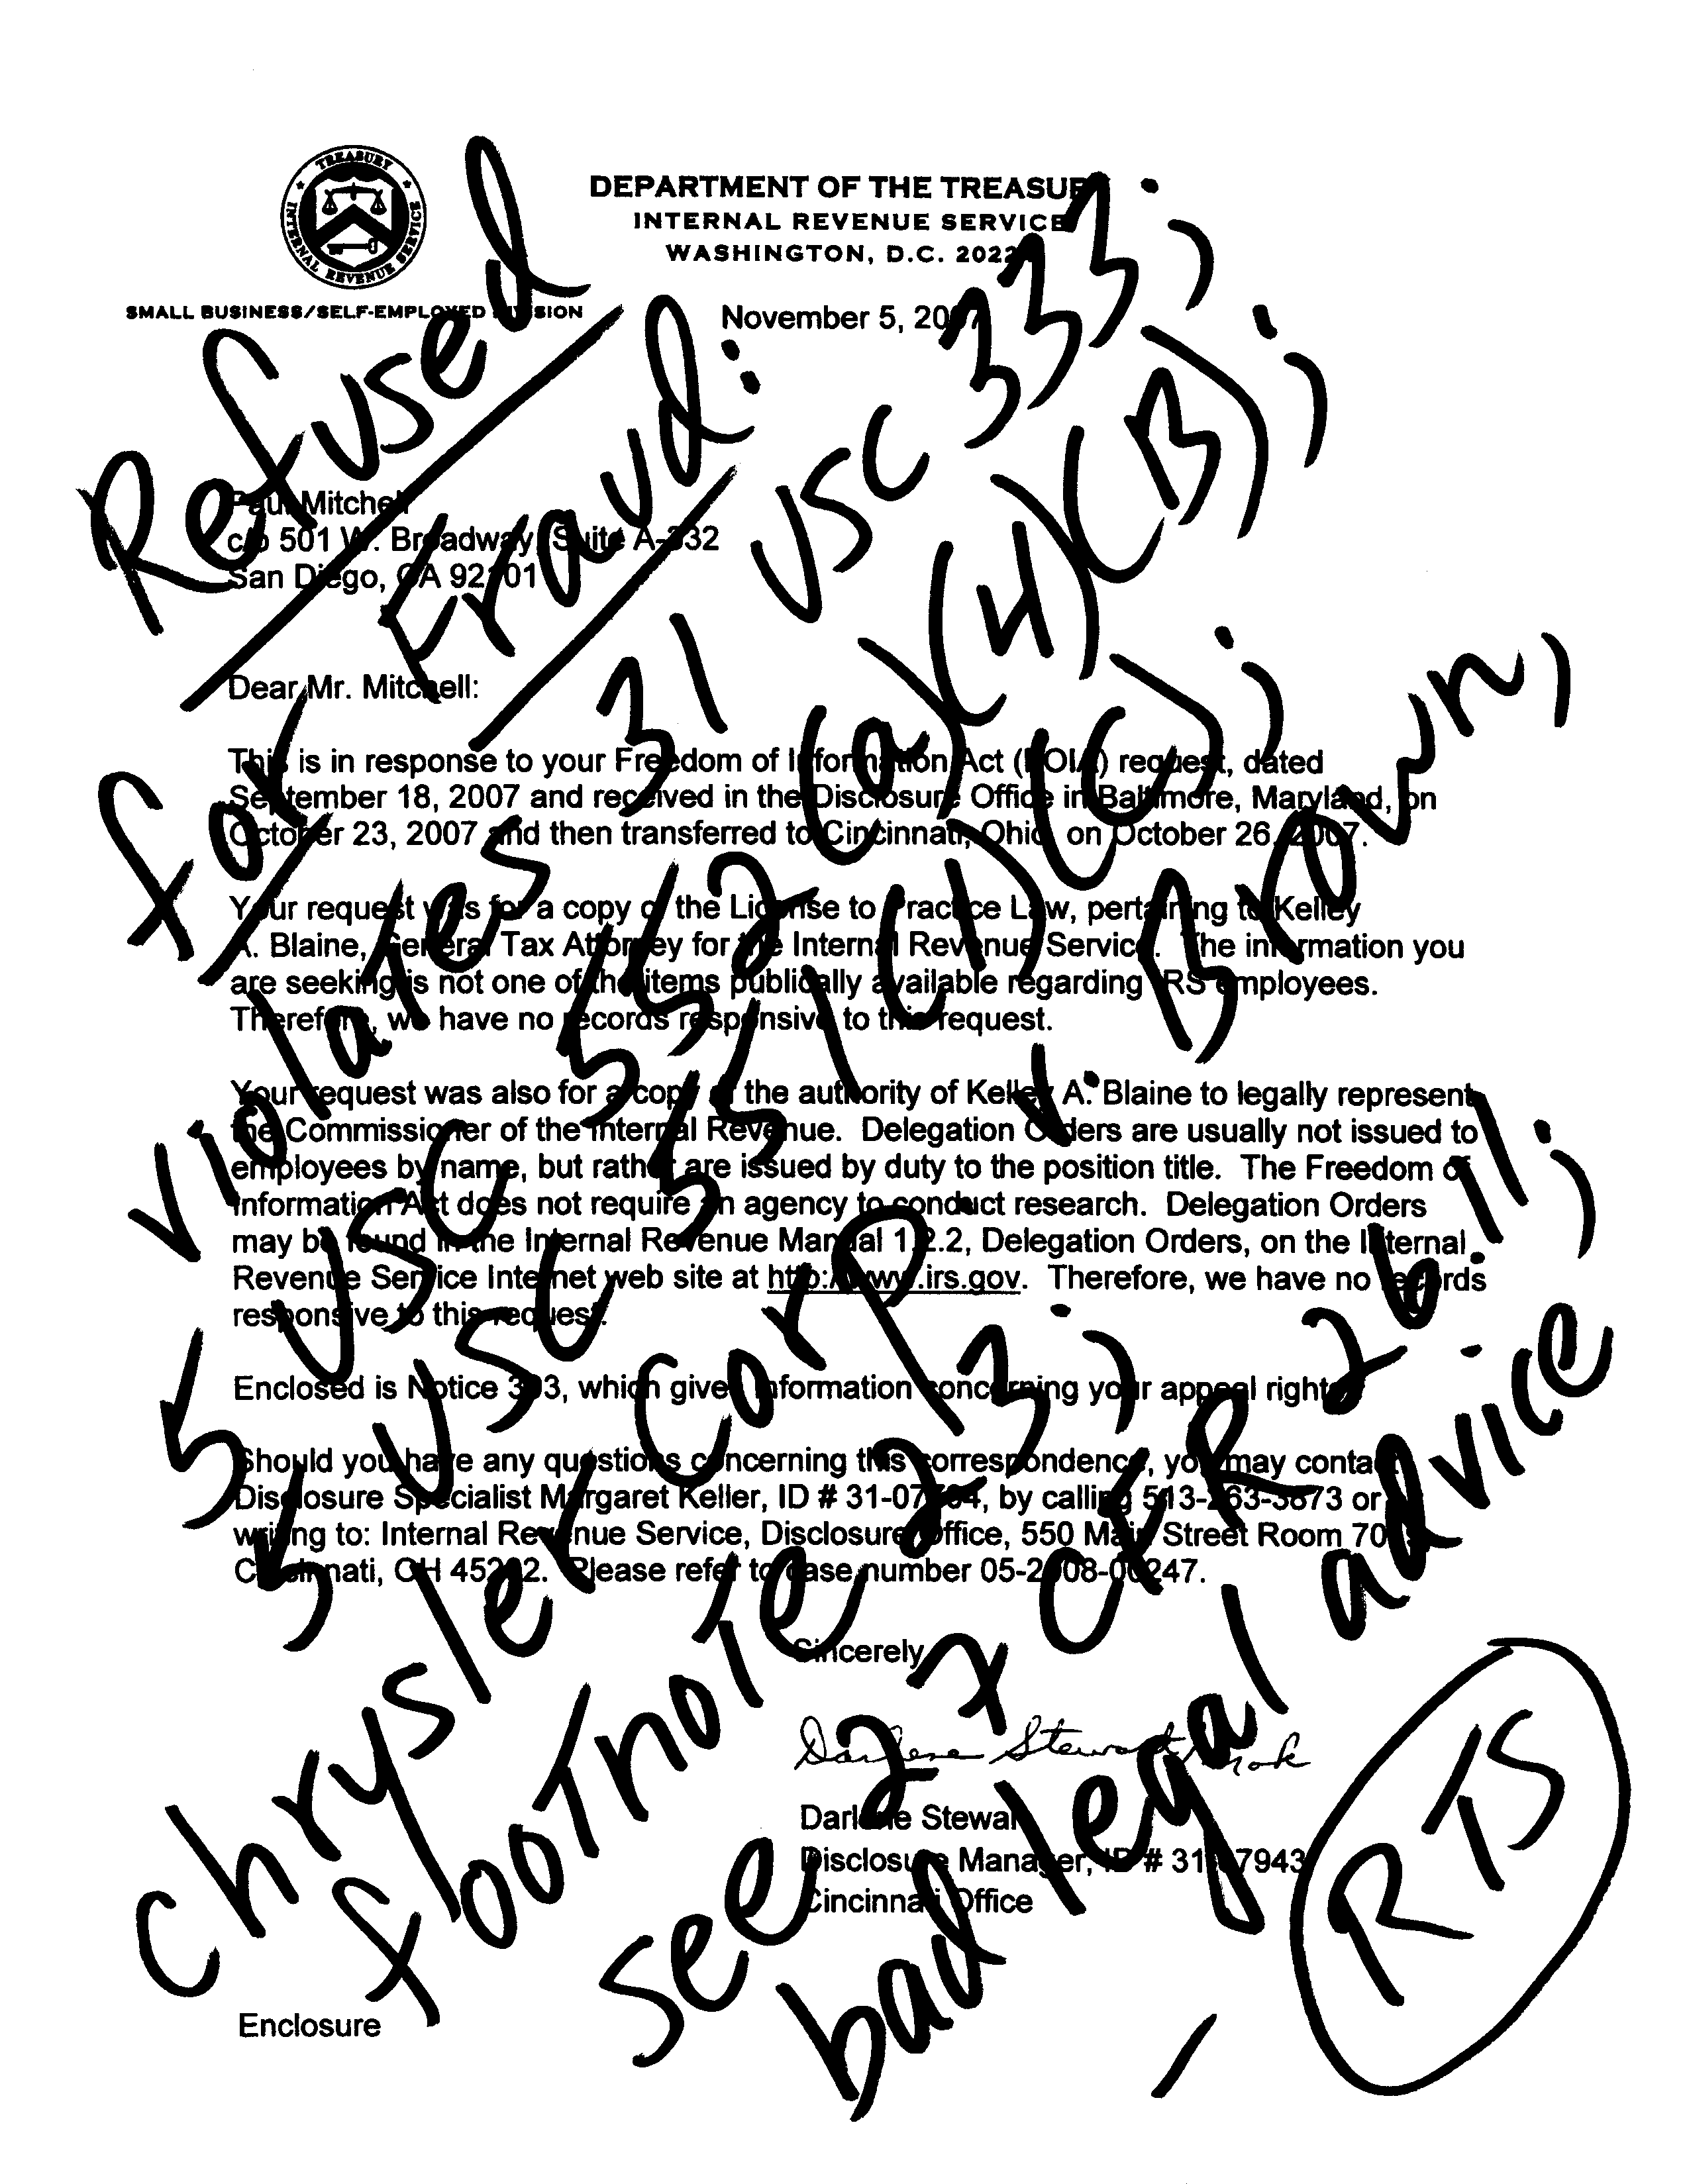 TREASURY
INTERNAL REVENUE SERVICE
DEPARTMENT OF THE TREASURY
INTERNAL REVENUE SERVICE
WASHINGTON, D.C.
SMALL BUSINESS/SELF-EMPLOYED DIVISION
November 5, 2007
Paul Mitchell
c/o 501 W. Broadway, Suite A-332
San Diego, CA 92101
Dear Mr. Mitchell:
This is in response to your Freedom of Information Act (FOIA) request, dated
September 18, 2007 and received in the Disclosure Office in Baltimore, Maryland, on
October 23, 2007 and then transferred to Cincinnati, Ohio on October 26, 2007.
Your request was for a copy of the License to Practice Law, pertaining to Kelley
A. Blaine, General Tax Attorney for the Internal Revenue Service. The information you
are seeking is not one of the items publically available regarding IRS employees.
Therefore, we have no records responsive to this request.
Your request was also for a copy of the authority of Kelley A. Blaine to legally represent
the Commissioner of the Internal Revenue. Delegation Orders are usually not issued to
employees by name, but rather are issued by duty to the position title. The Freedom of
Information Act does not require an agency to conduct research. Delegation Orders
may be found in the Internal Revenue Manual 1.2.2, Delegation Orders, on the Internal
Revenue Service Internet web site at http://www.irs.gov. Therefore, we have no records
responsive to this request.
Enclosed is Notice 393, which gives information concerning your appeal rights.
Should you have any questions concerning this correspondence, you may contact
Disclosure Specialist Margaret Keller, ID # by calling or
writing to: Internal Revenue Service, Disclosure Office, 550 Main Street Room
Cincinnati, OH 45202. Please refer to case number 05-2008-00247.
Sincerely,
Darlene Stewart
Darlene Stewart
Disclosure Manager, ID #
Cincinnati Office
Enclosure
Refused
for Fraud:
violates 31 USC 333;
5 USC 552(a)(4)(B);
5 USC 551(1)(C);
Chrysler Corp v. Brown,
footnote 23;
see 27 CFR 26.11;
bad legal advice
RTS